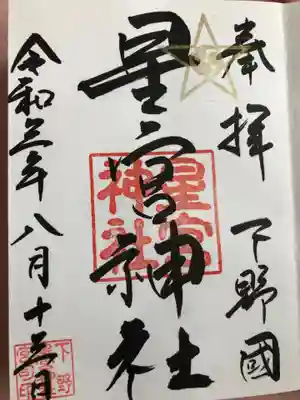 奉拝 下野國
星宮神社
星宮神社
令和三年八月十三日